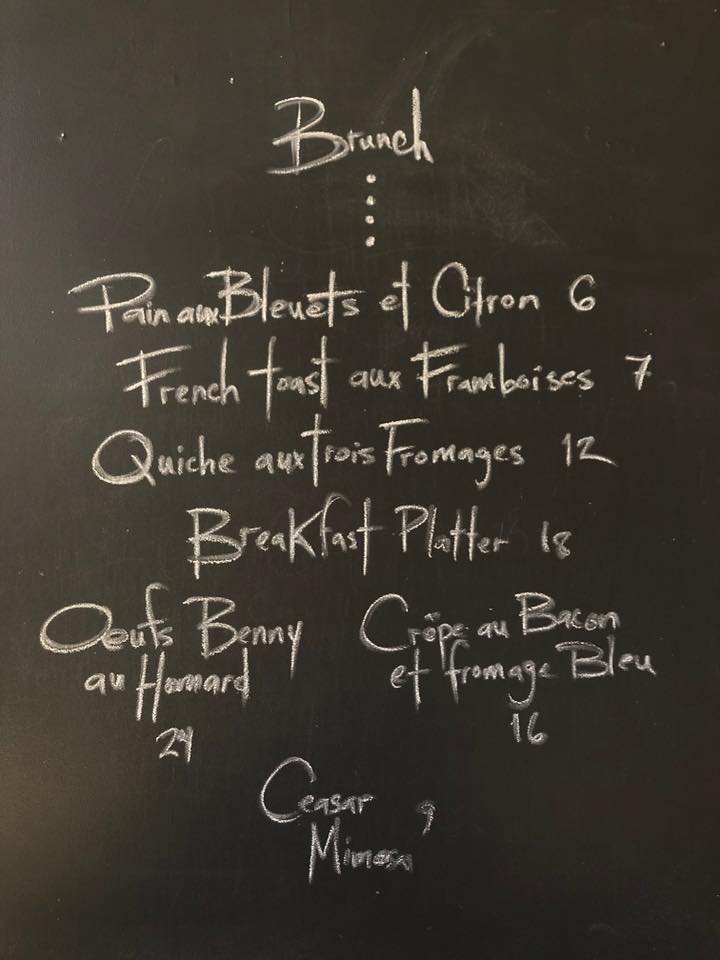 Brunch
Pain aux Bleuets et Citron 6
French toast aux Framboises 7
Quiche aux trois Fromages 12
Breakfast Platter 18
Oeufs Benny
au Homard
24
Crêpe au Bacon
et fromage Bleu
16
Ceasar 9
Mimosa